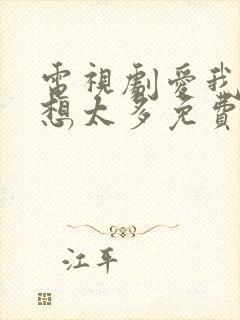 電視劇愛我
想太多免費
江平